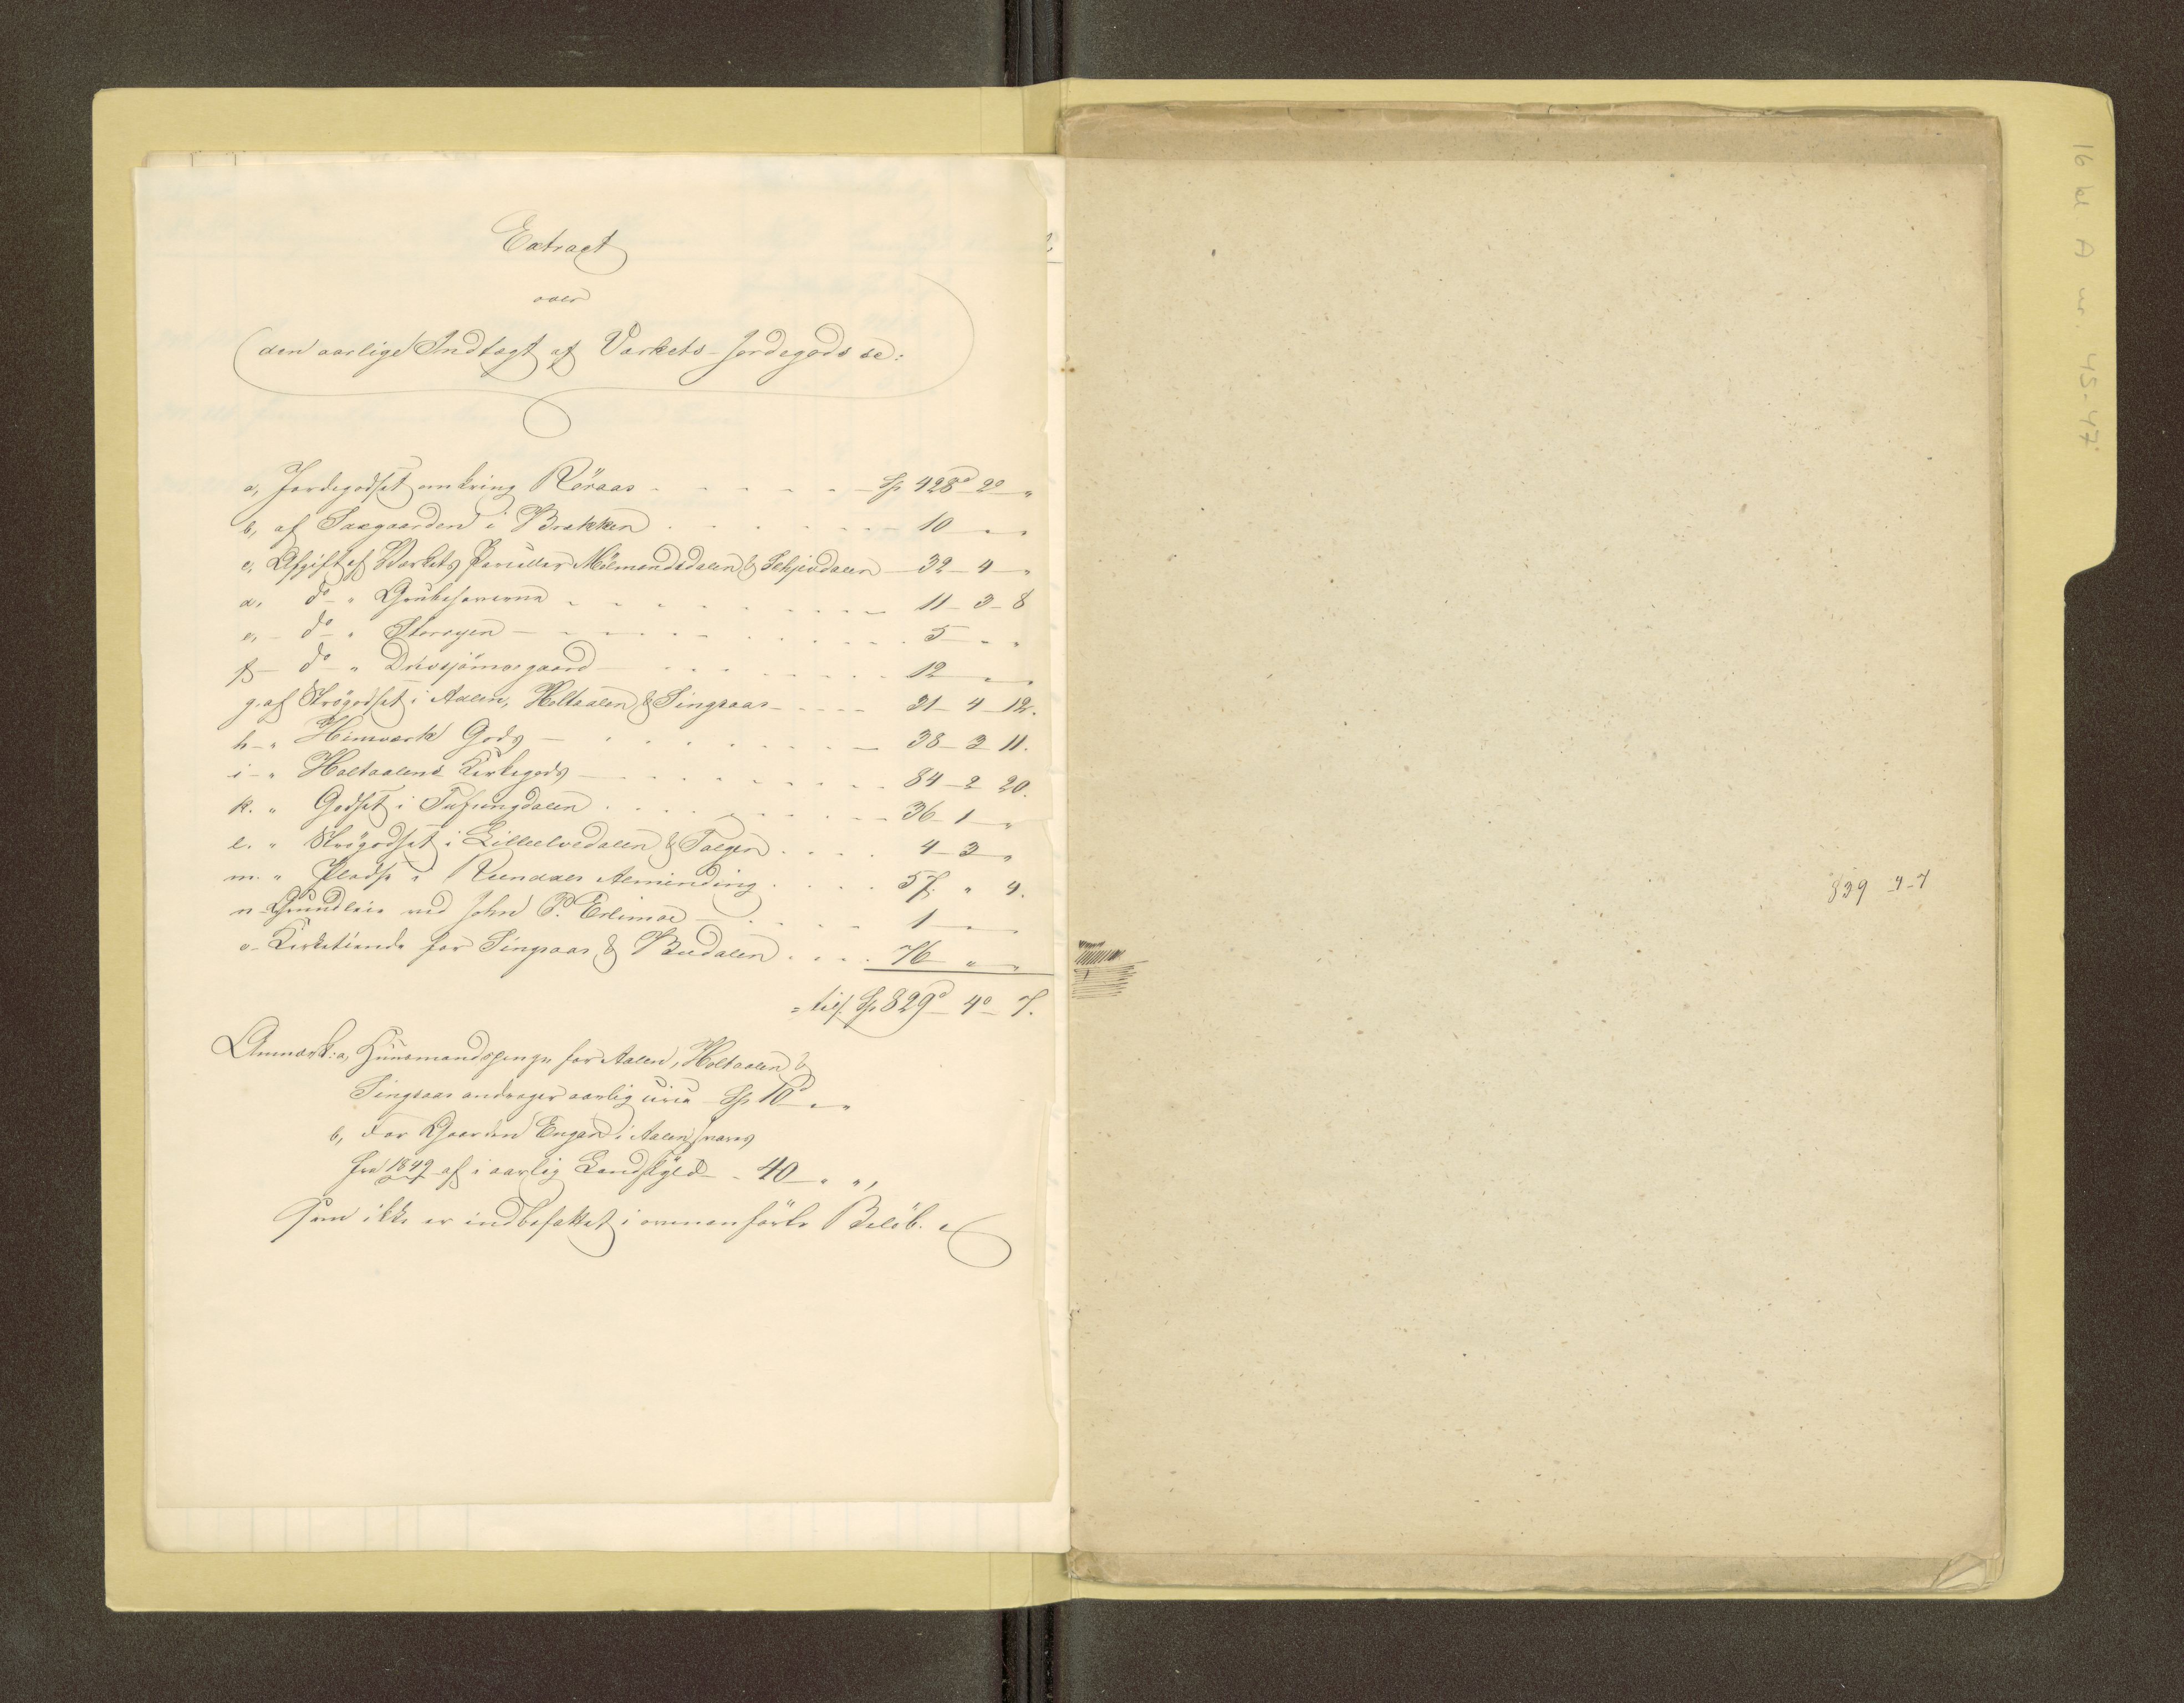 Extract
over
den aarlige Indtægt af Værkets Jordegods se:
a, Jordegodset omkring Röraas - - - - - Sp 428d 2o "
b, af Saxgaarden i Brekken - - - - - 10 " "
c, Afgift af Værkets Parceller Mölmandsdalen & Schjevdalen - 32 - 4 "
d, do " Grubesæterne - - - - - 11 - 3 - 8
e, - do " Storryen - - - - - 5 - " "
f - do - " Drevsjömoegaard - - - - - 12 " "
g. af Strögodset i Aalen, Holtaalen & Singsaas - - - - 31 - 4 - 12.
h - " Hinværk Gods - - - - - 38 - 2 11.
i - " Holtaalens Kirkegods - - - - - 84 - 2 20.
k. " Godset i Tufsingdalen - - - - - 36 - 1 "
l. " Strögodset i Lilleelvedalen & Tolgen - - - - 4 - 3 "
m. " Pladse i Rendalens Alminding - - - - 57. " 4.
n - Grundleie ved John P. Erlimoe - - - - 1 " "
o - Kirketiende for Singsaas & Budalen - - - - 76 " "
= tils. Sp 829d - 4o - 7.
Anmærk: a, Huusmandspenge for Aalen, Holtaalen &
Singsaas andrager aarlig circa Sp. 10d " "
b, For Gaarden Engan i Aalen svares
fra 1849 af i aarlig Landskyld - 40 " ",
som ikke er indbefattet i ovenanförte Belöb.
839 4-7
16 kl A nr. 45-47